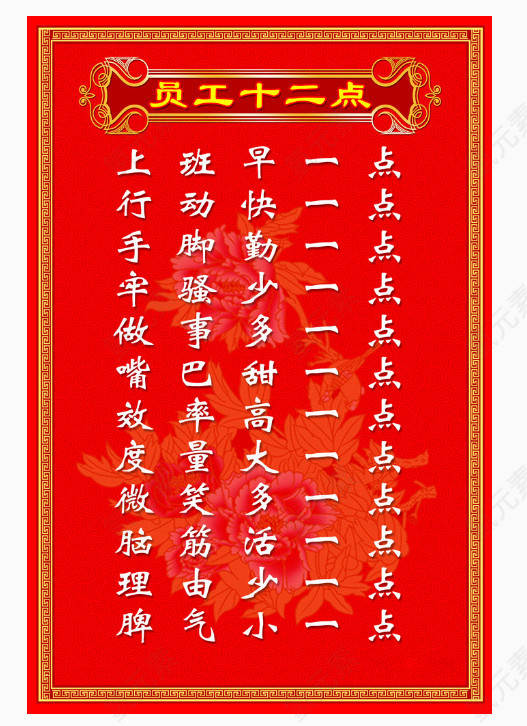 员工十二点
上班早一点
行动快一点
手脚勤一点
牢骚少一点
做事多一点
嘴巴甜一点
效率高一点
度量大一点
微笑多一点
脑筋活一点
理由少一点
脾气小一点